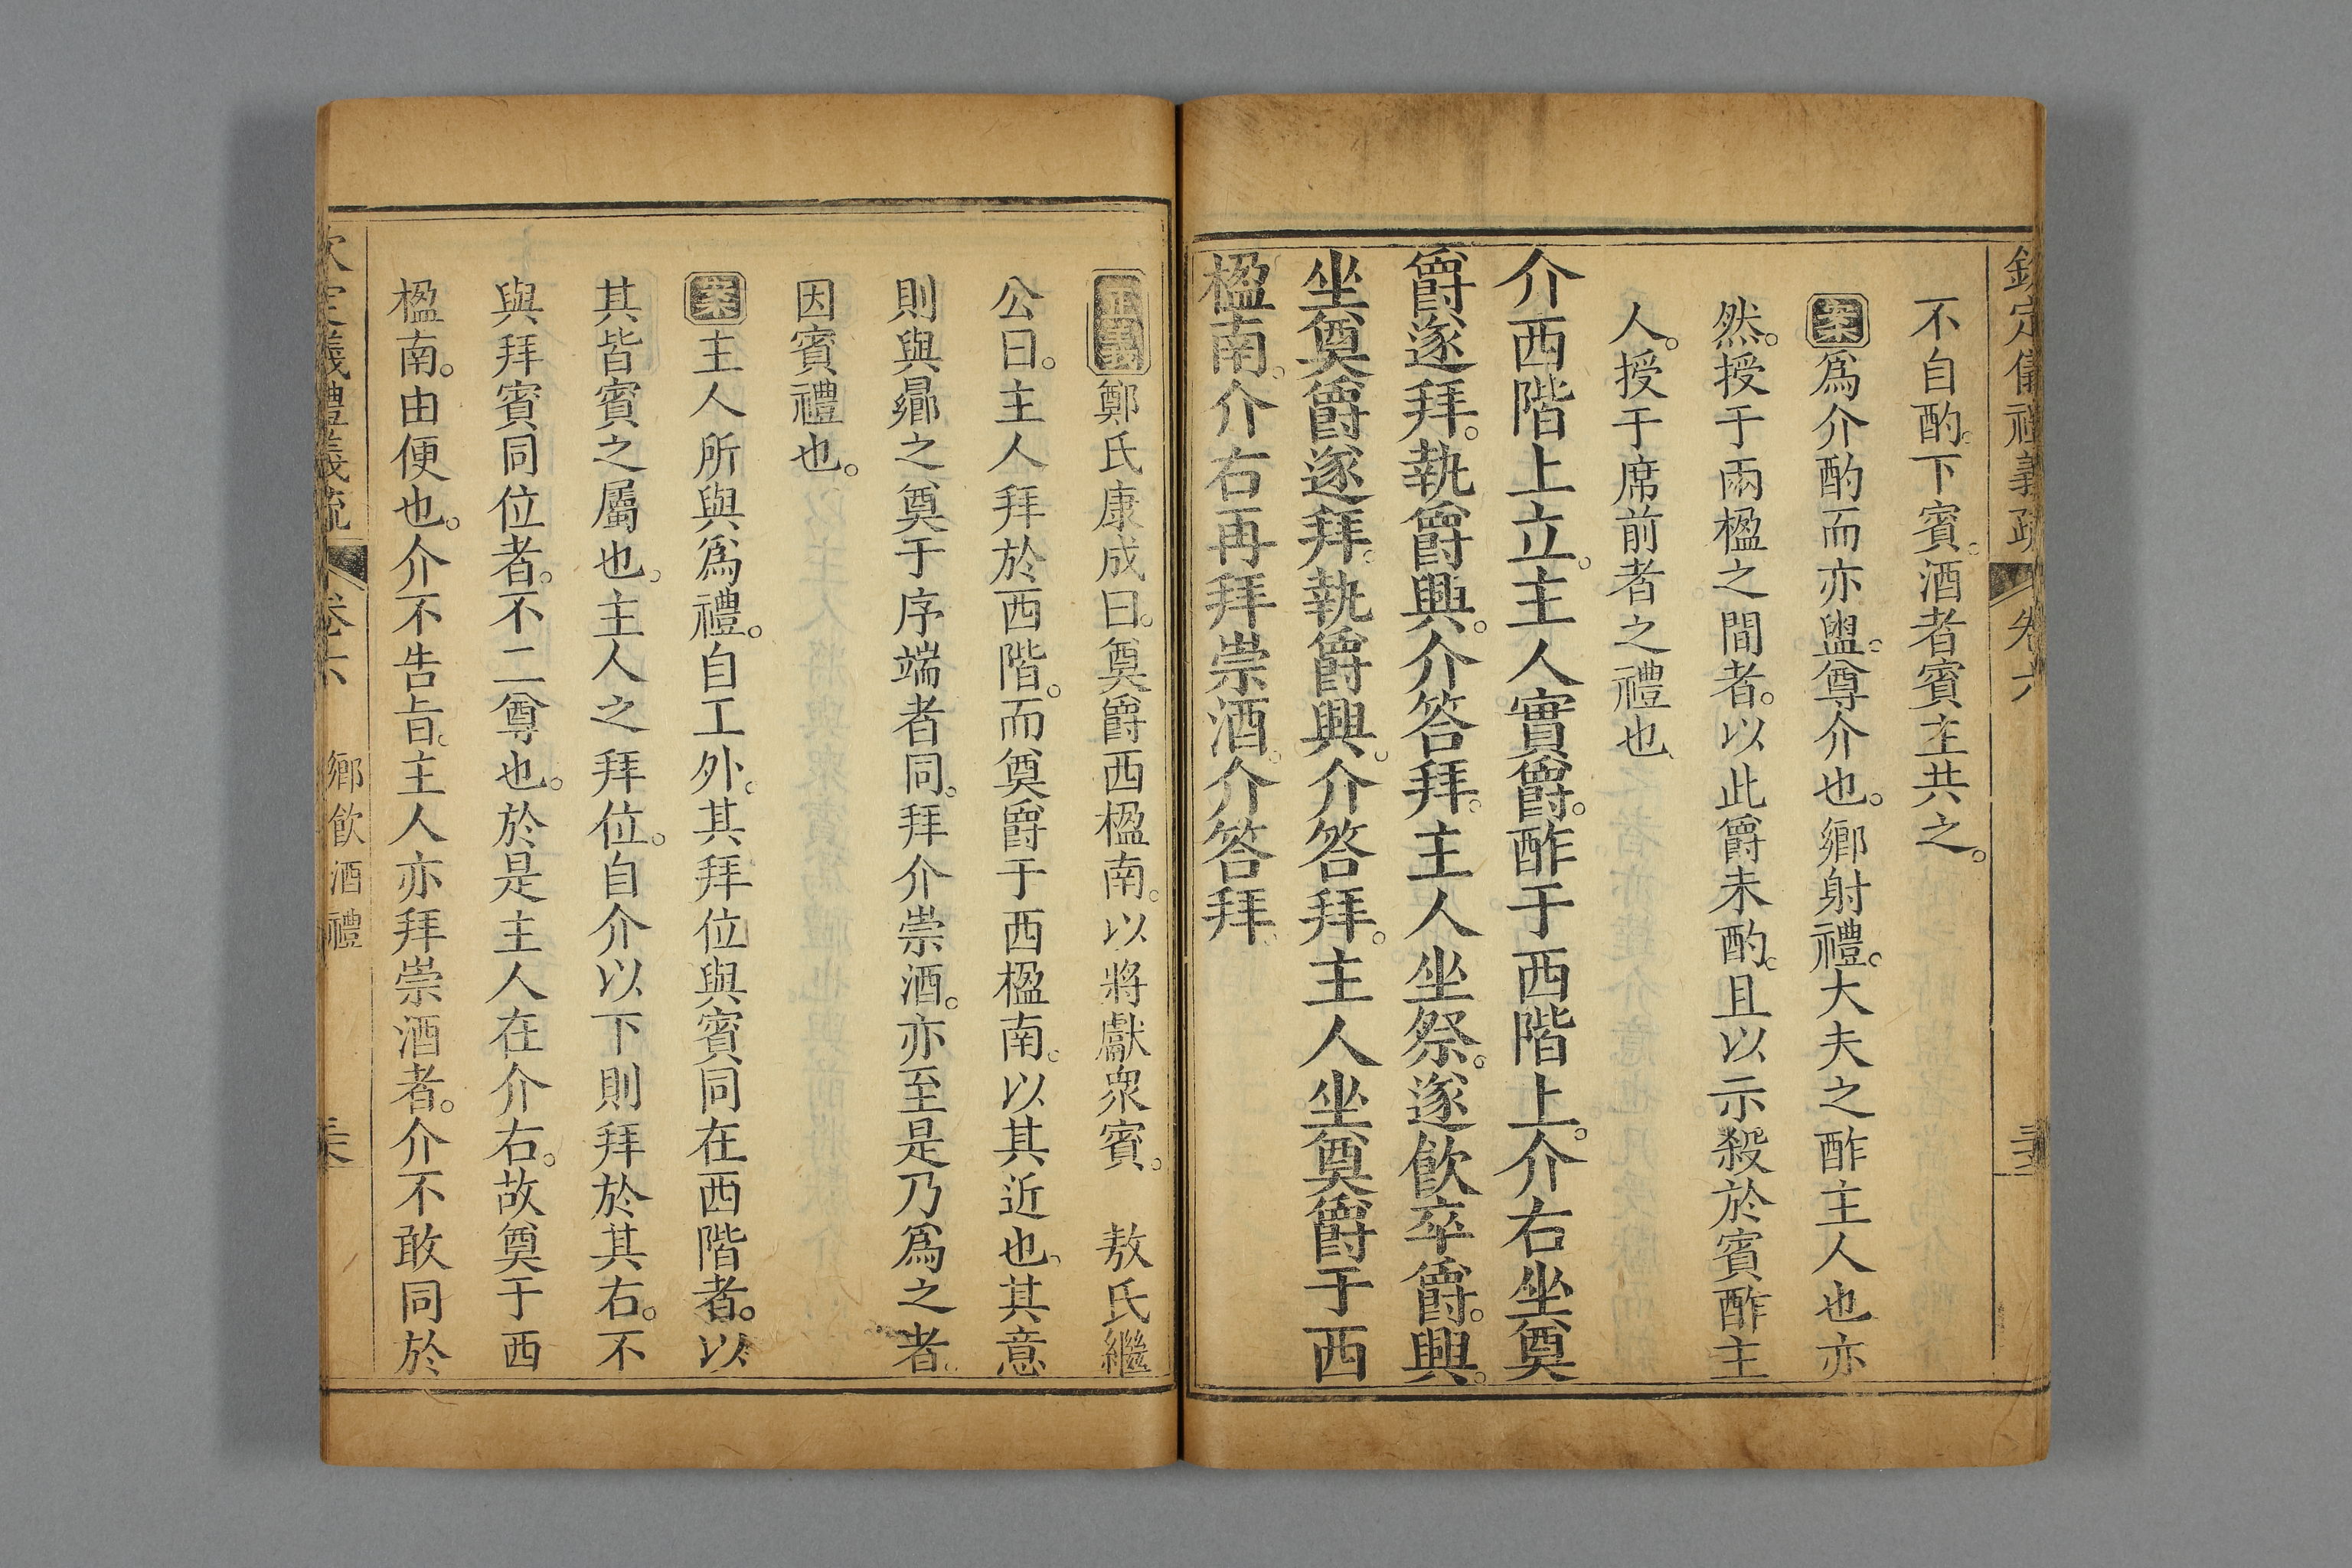 欽定儀禮義疏 卷六
不自酌。下賓。酒者賓主共之。
案爲介酌而亦盥。尊介也。鄉射禮。大夫之酢主人也亦
然。授于兩楹之間者。以此爵未酌。且以示殺於賓酢主
人。授于席前者之禮也。
介西階上立。主人實爵。酢于西階上。介右坐奠
爵。遂拜。執爵興。介答拜。主人坐祭。遂飲卒爵。興。
坐奠爵。遂拜。執爵興。介答拜。主人坐奠爵于西
楹南。介右再拜崇酒。介答拜。
正義鄭氏康成曰。奠爵西楹南。以將獻衆賓。 敖氏繼
公曰。主人拜於西階。而奠爵于西楹南。以其近也。其意
則與曏之奠于序端者同。拜介崇酒。亦至是乃爲之者。
因賓禮也。
案主人所與爲禮。自工外。其拜位與賓同在西階者。以
其皆賓之屬也。主人之拜位。自介以下則拜於其右。不
與拜賓同位者。不二尊也。於是主人在介右。故奠于西
楹南。由便也。介不告旨。主人亦拜崇酒者。介不敢同於
欽定儀禮義疏 卷六 鄉飲酒禮